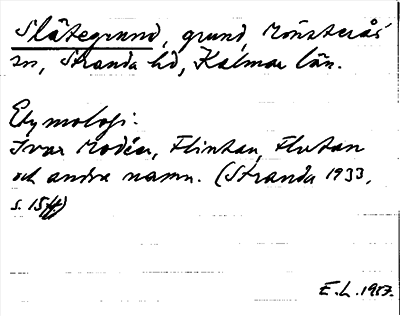 Slätegrund, grund, Mönsterås
sn, Stranda hd, Kalmar län.
Etymologi:
Ivar Modéer, Flintan, Flutan
och andra namn. (Stranda 1933,
s. 15ff)
E.L. 1957.